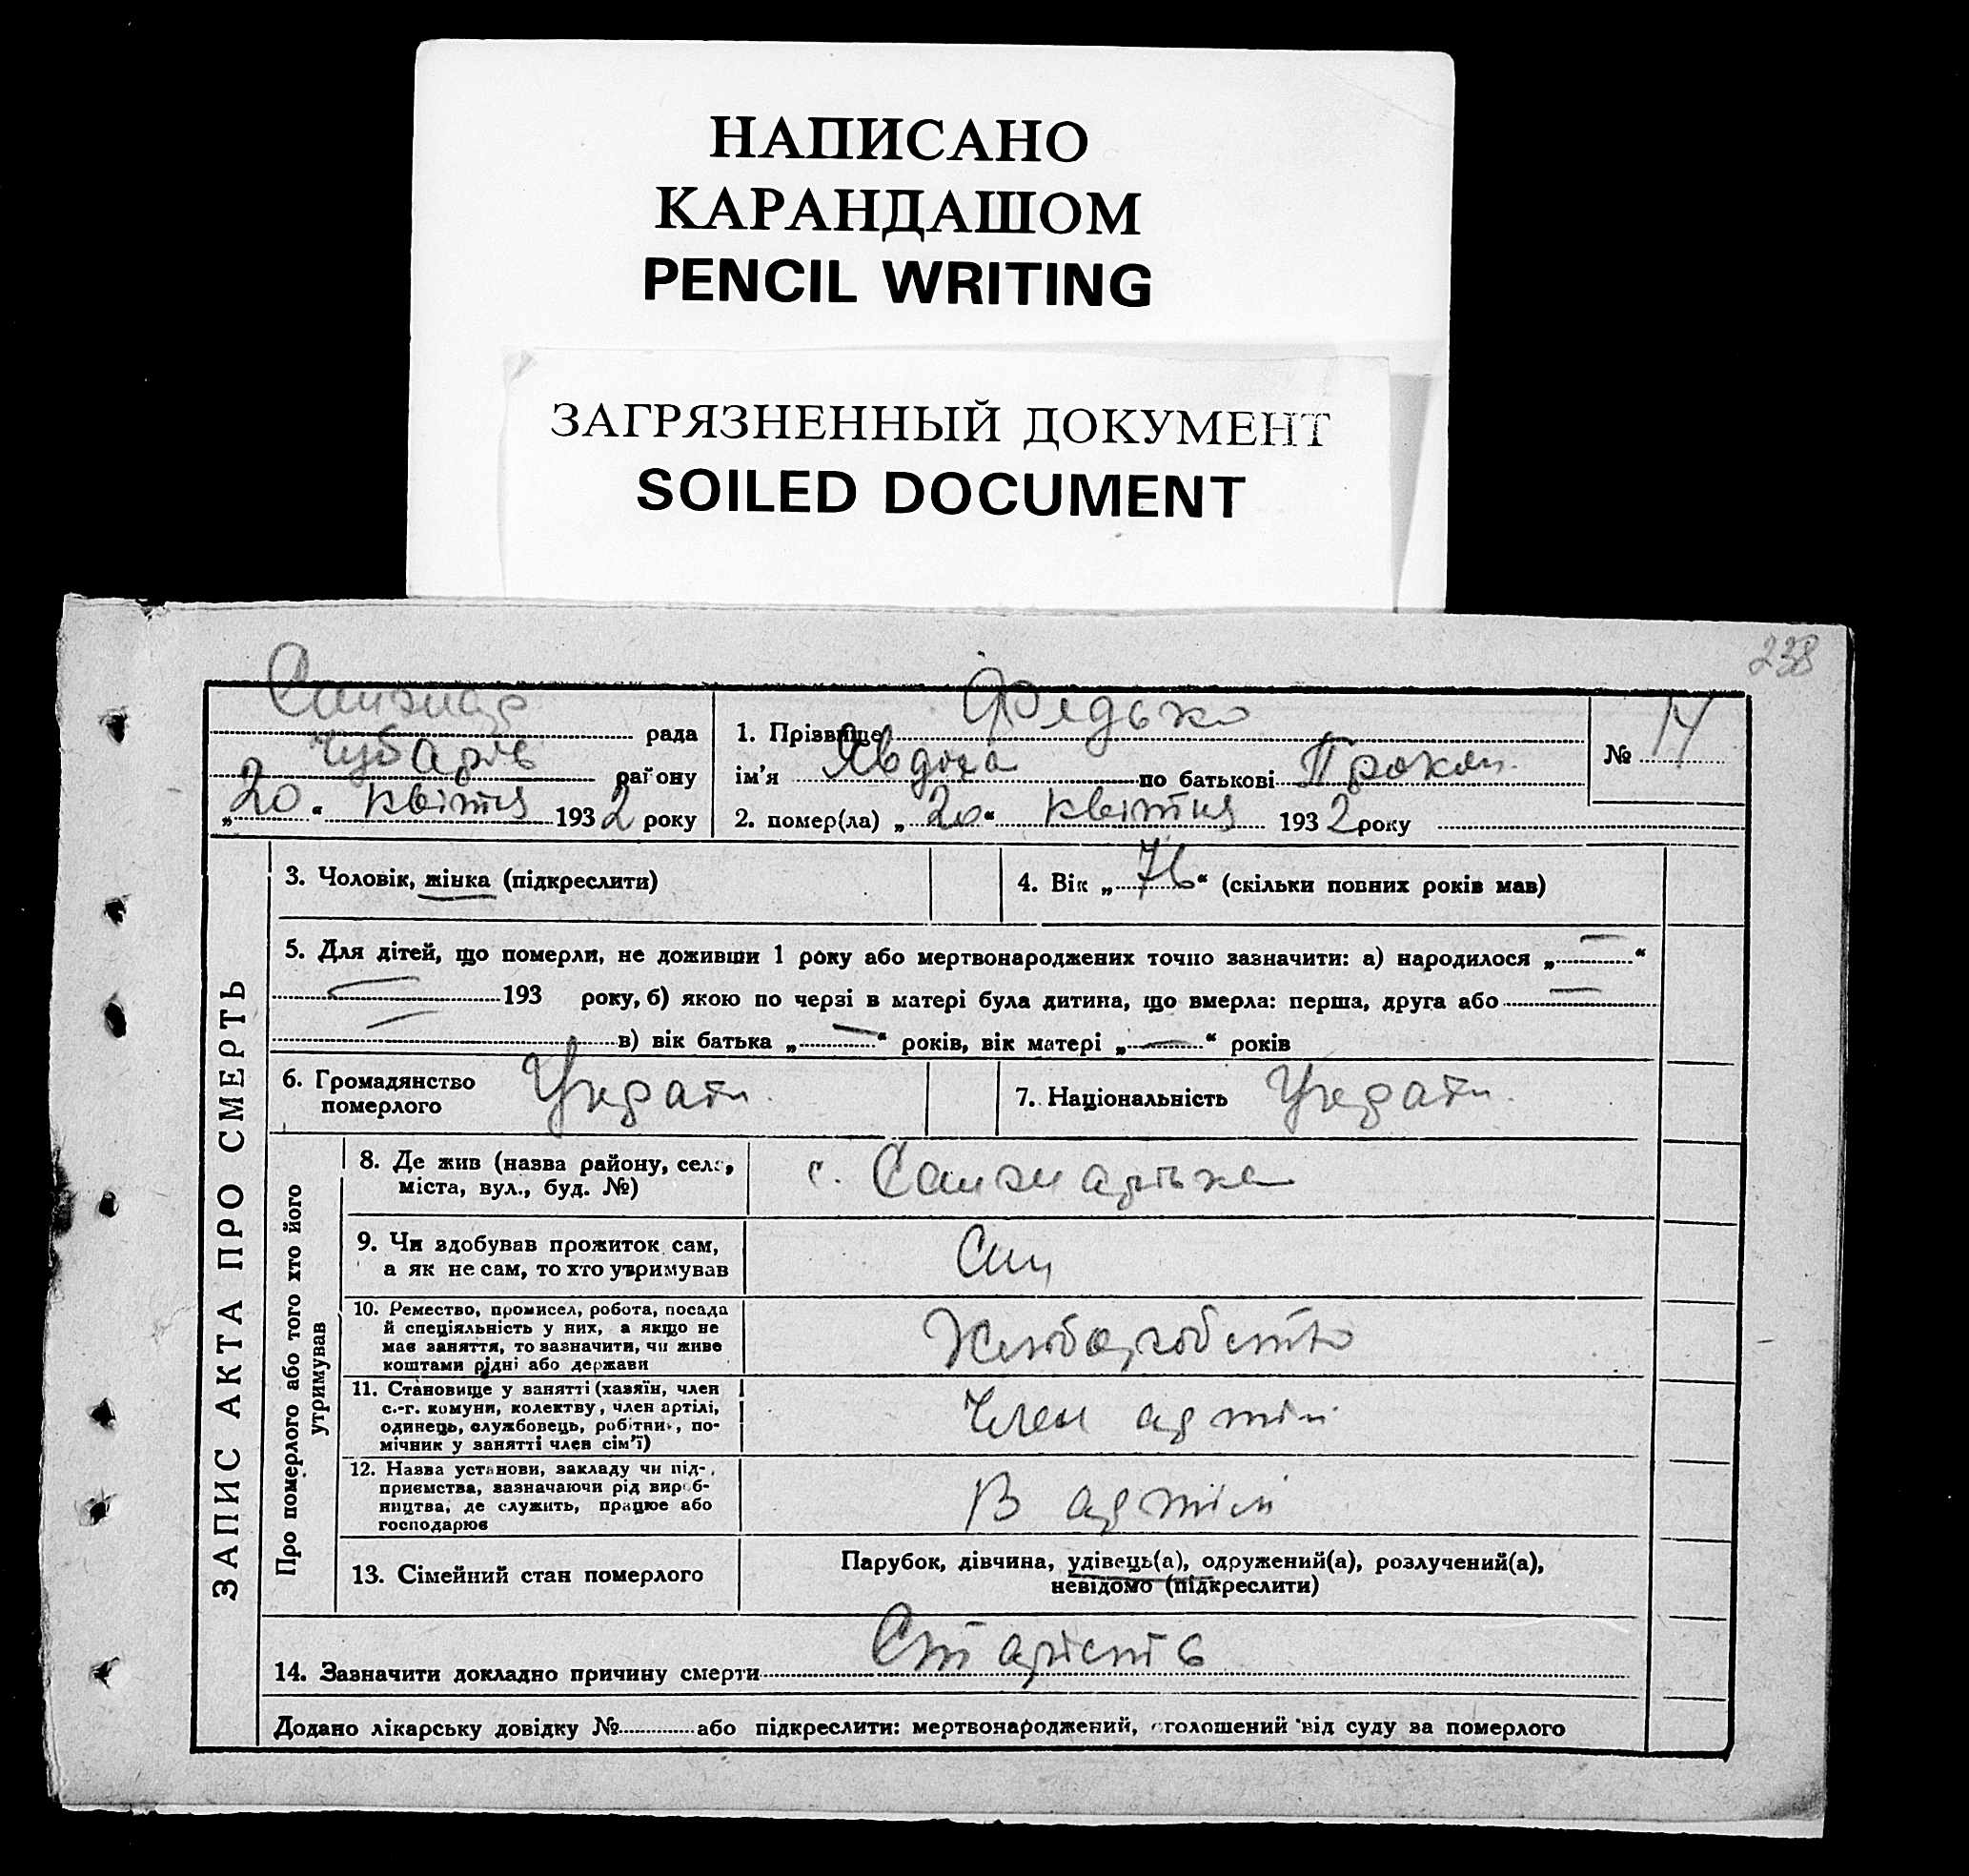 НАПИСАНО
КАРАНДАШОМ
PENCIL WRITING
ЗАГРЯЗНЕННЫЙ ДОКУМЕНТ
SOILED DOCUMENT
238
рада
Чубарів району
„20“ квітня 1932 року
1. Прізвище Федько
ім'я Явдоха по батькові Прокоп.
2. помер(ла) „20“ квітня 1932 року
№ 14
ЗАПИС АКТА ПРО СМЕРТЬ
3. Чоловік, жінка (підкреслити)
4. Вік „76“ (скільки повних років мав)
5. Для дітей, що померли, не доживши 1 року або мертвонароджених точно зазначити: а) народилося „—“
— 193 року, б) якою по черзі в матері була дитина, що вмерла: перша, друга або —
— в) вік батька „—“ років, вік матері „—“ років
6. Громадянство
померлого
Україн.
7. Національність Україн.
Про померлого або того хто його
утримував
8. Де жив (назва району, села,
міста, вул., буд. №)
с. Санжарівка
9. Чи здобував прожиток сам,
а як не сам, то хто утримував
10. Ремество, промисел, робота, посада
й спеціяльність у них, а якщо не
має заняття, то зазначити, чи живе
коштами рідні або держави
Хлібороб ство
11. Становище у занятті (хазяїн, член
с.-г. комуни, колективу, член артілі,
одинець, службовець, робітник, по-
мічник у занятті член сім'ї)
Член артілі
12. Назва установи, закладу чи під-
приємства, зазначаючи рід вироб-
ництва, де служить, працює або
господарює
В артілі
13. Сімейний стан померлого
Парубок, дівчина, удівець(а), одружений(а), розлучений(а),
невідомо (підкреслити)
14. Зазначити докладно причину смерти Старість
Додано лікарську довідку № або підкреслити: мертвонароджений, оголошений від суду за померлого